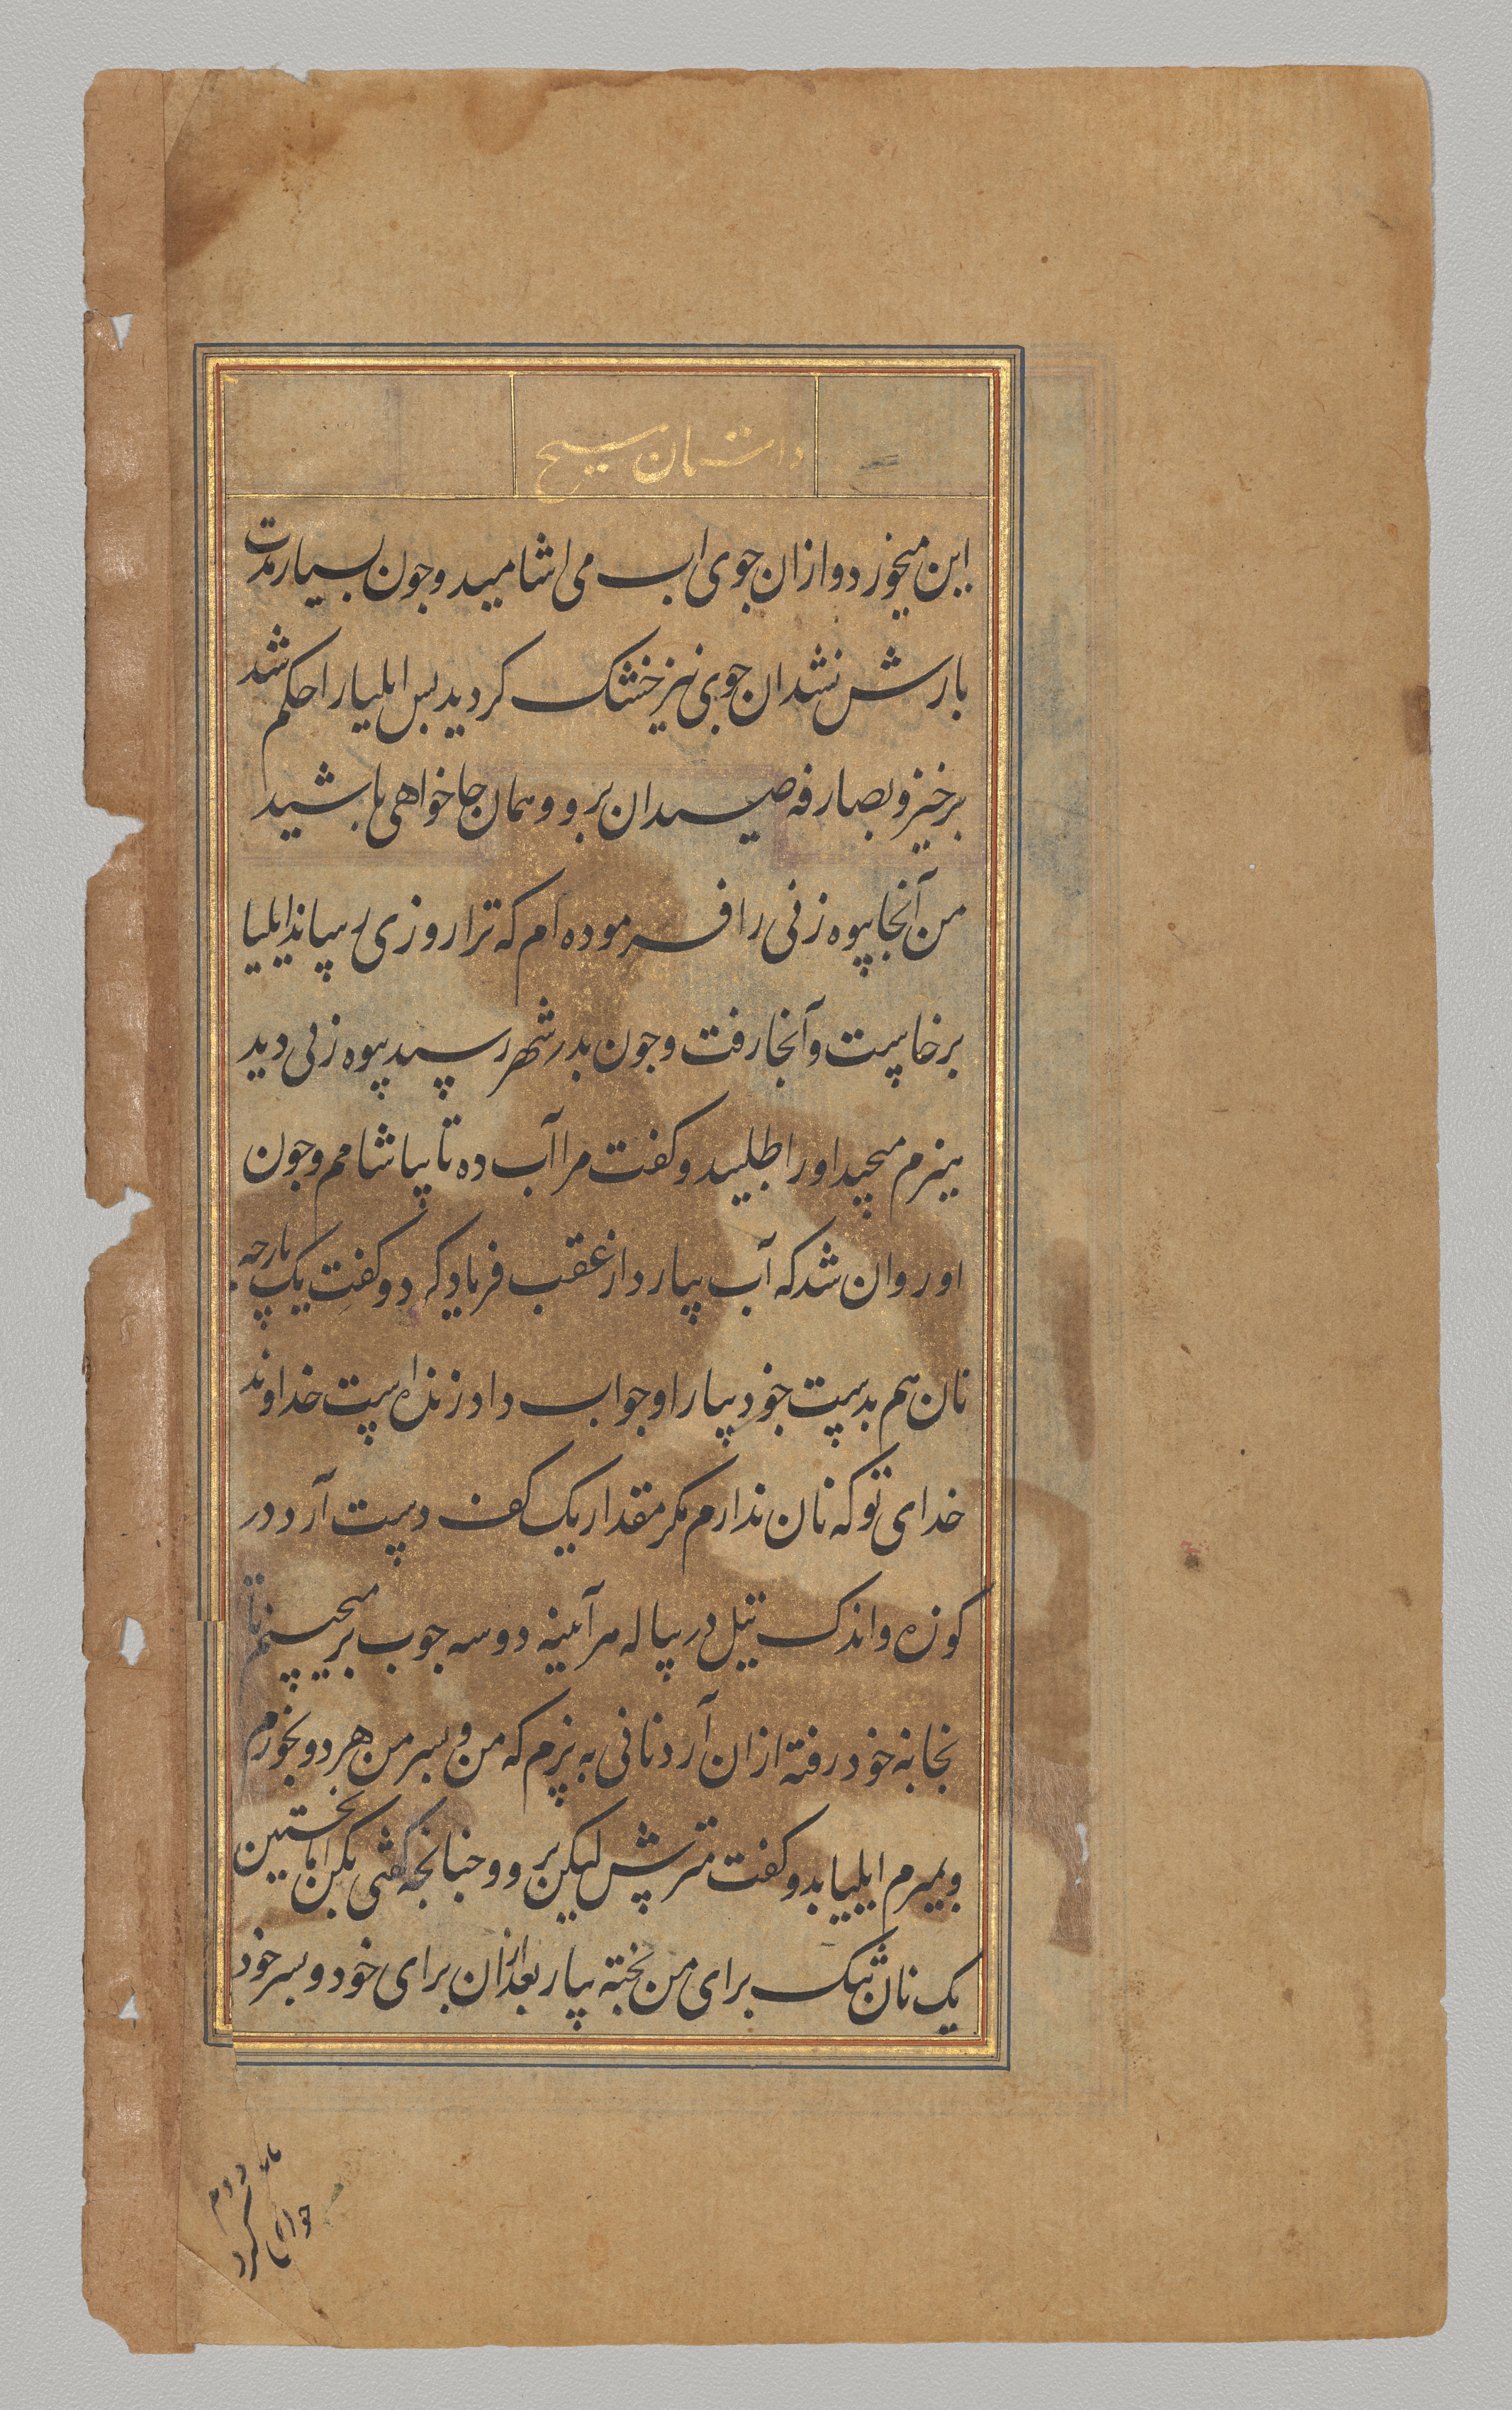 داستان مسیح
این میخورد و ازان جوی اب می اشامید و جون بسیار مدت
بارش نشد ان جوی نیز خشک کردید بس ایلیا را حکم شد
برخیز و بصارفه صیدان برو و همان جا خواهی باشید
من آنجا بیوه زنی را فرموده ام که ترا روزی رساند ایلیا
برخاست و آنجا رفت و جون بدر شهر رسید بیوه زنی دید
هیزم میچید او را طلبید و کفت مرا آب ده تا بیاشامم و جون
او روان شد که آب بیارد از عقب فریاد کرد و کفت یک پارچه
نان هم بدست خود بیار او جواب داد زنده است خداوند
خدای تو که نان ندارم مکر مقدار یک کف دست آرد در
کوزه و اندک تیل در پیاله هر آیینه دو سه جوب برمیچینم تا
بخانه خود رفته ازان آرد نانی به پزم که من و بسر من هر دو بخوریم
و بمیرم ایلیا بدو کفت مترس لیکن برو و جنانجه کفتی بکن اما نخستین
یک نان تنک برای من بخته بیار بعد ازان برای خود و بسر خود